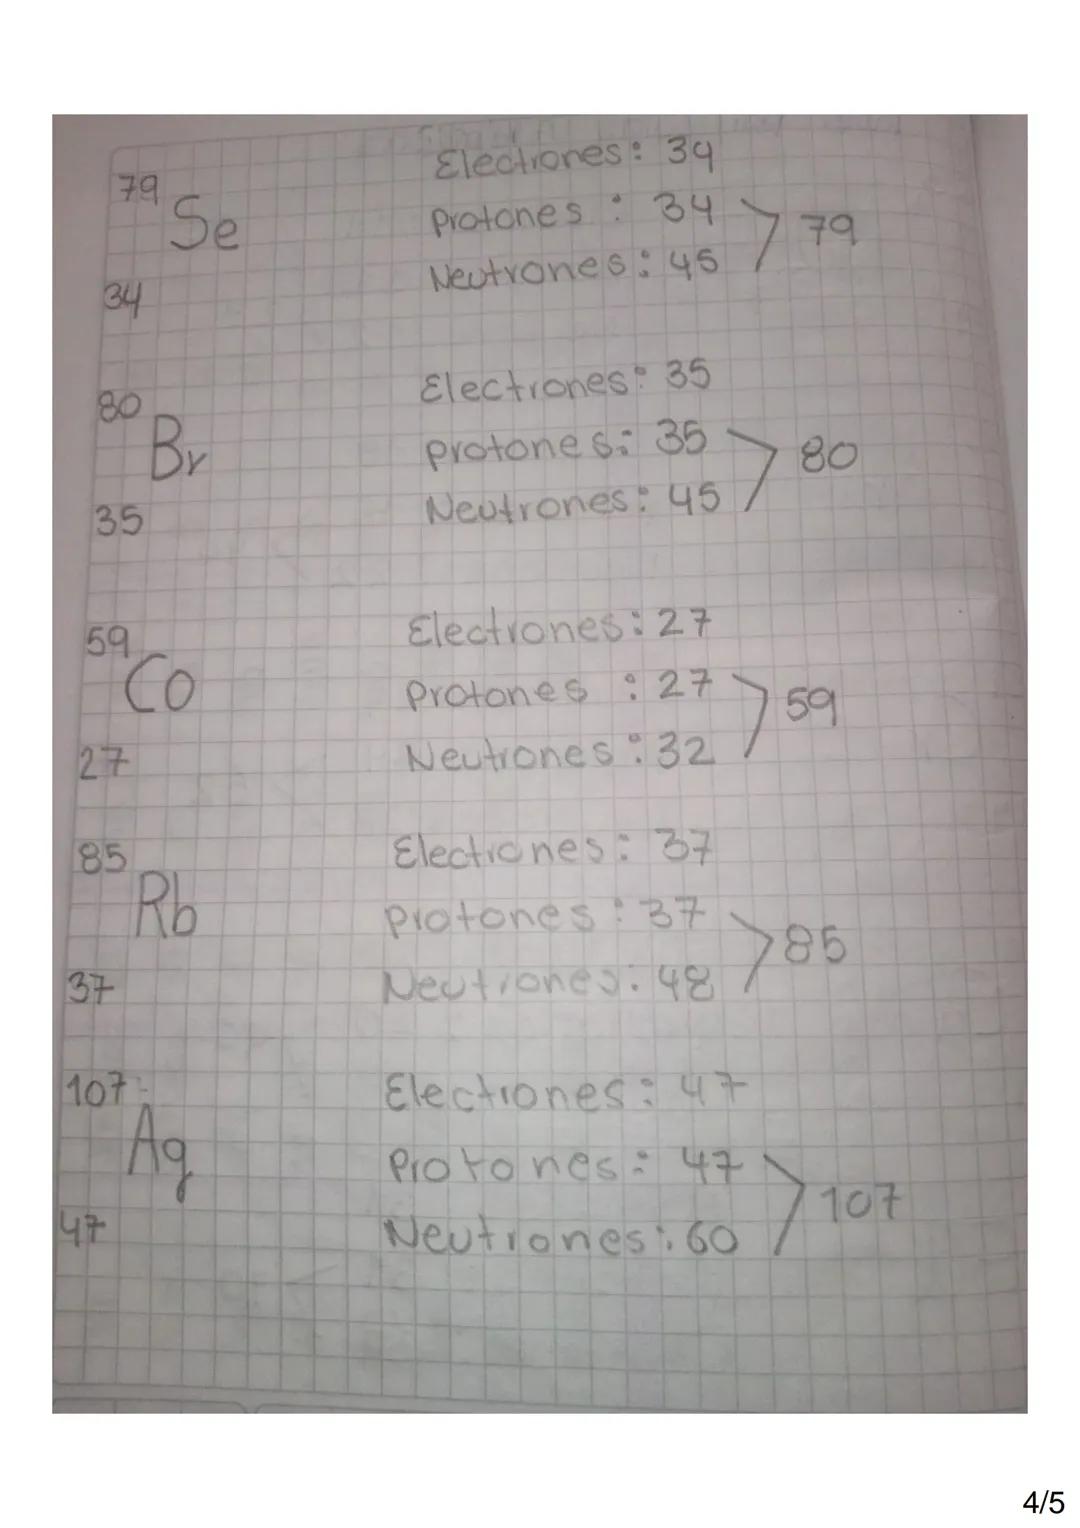 79 Electrones: 34
Se Protones : 34 > 79
34 Neutrones: 45
80 Electrones: 35
Br protones: 35 > 80
35 Neutrones: 45
59 Electrones: 27
Co Protones : 27 > 59
27 Neutrones: 32
85 Electrones: 37
Rb protones: 37 > 85
37 Neutrones: 48
107 Electrones: 47
Ag Protones: 47 > 107
47 Neutrones: 60
4/5